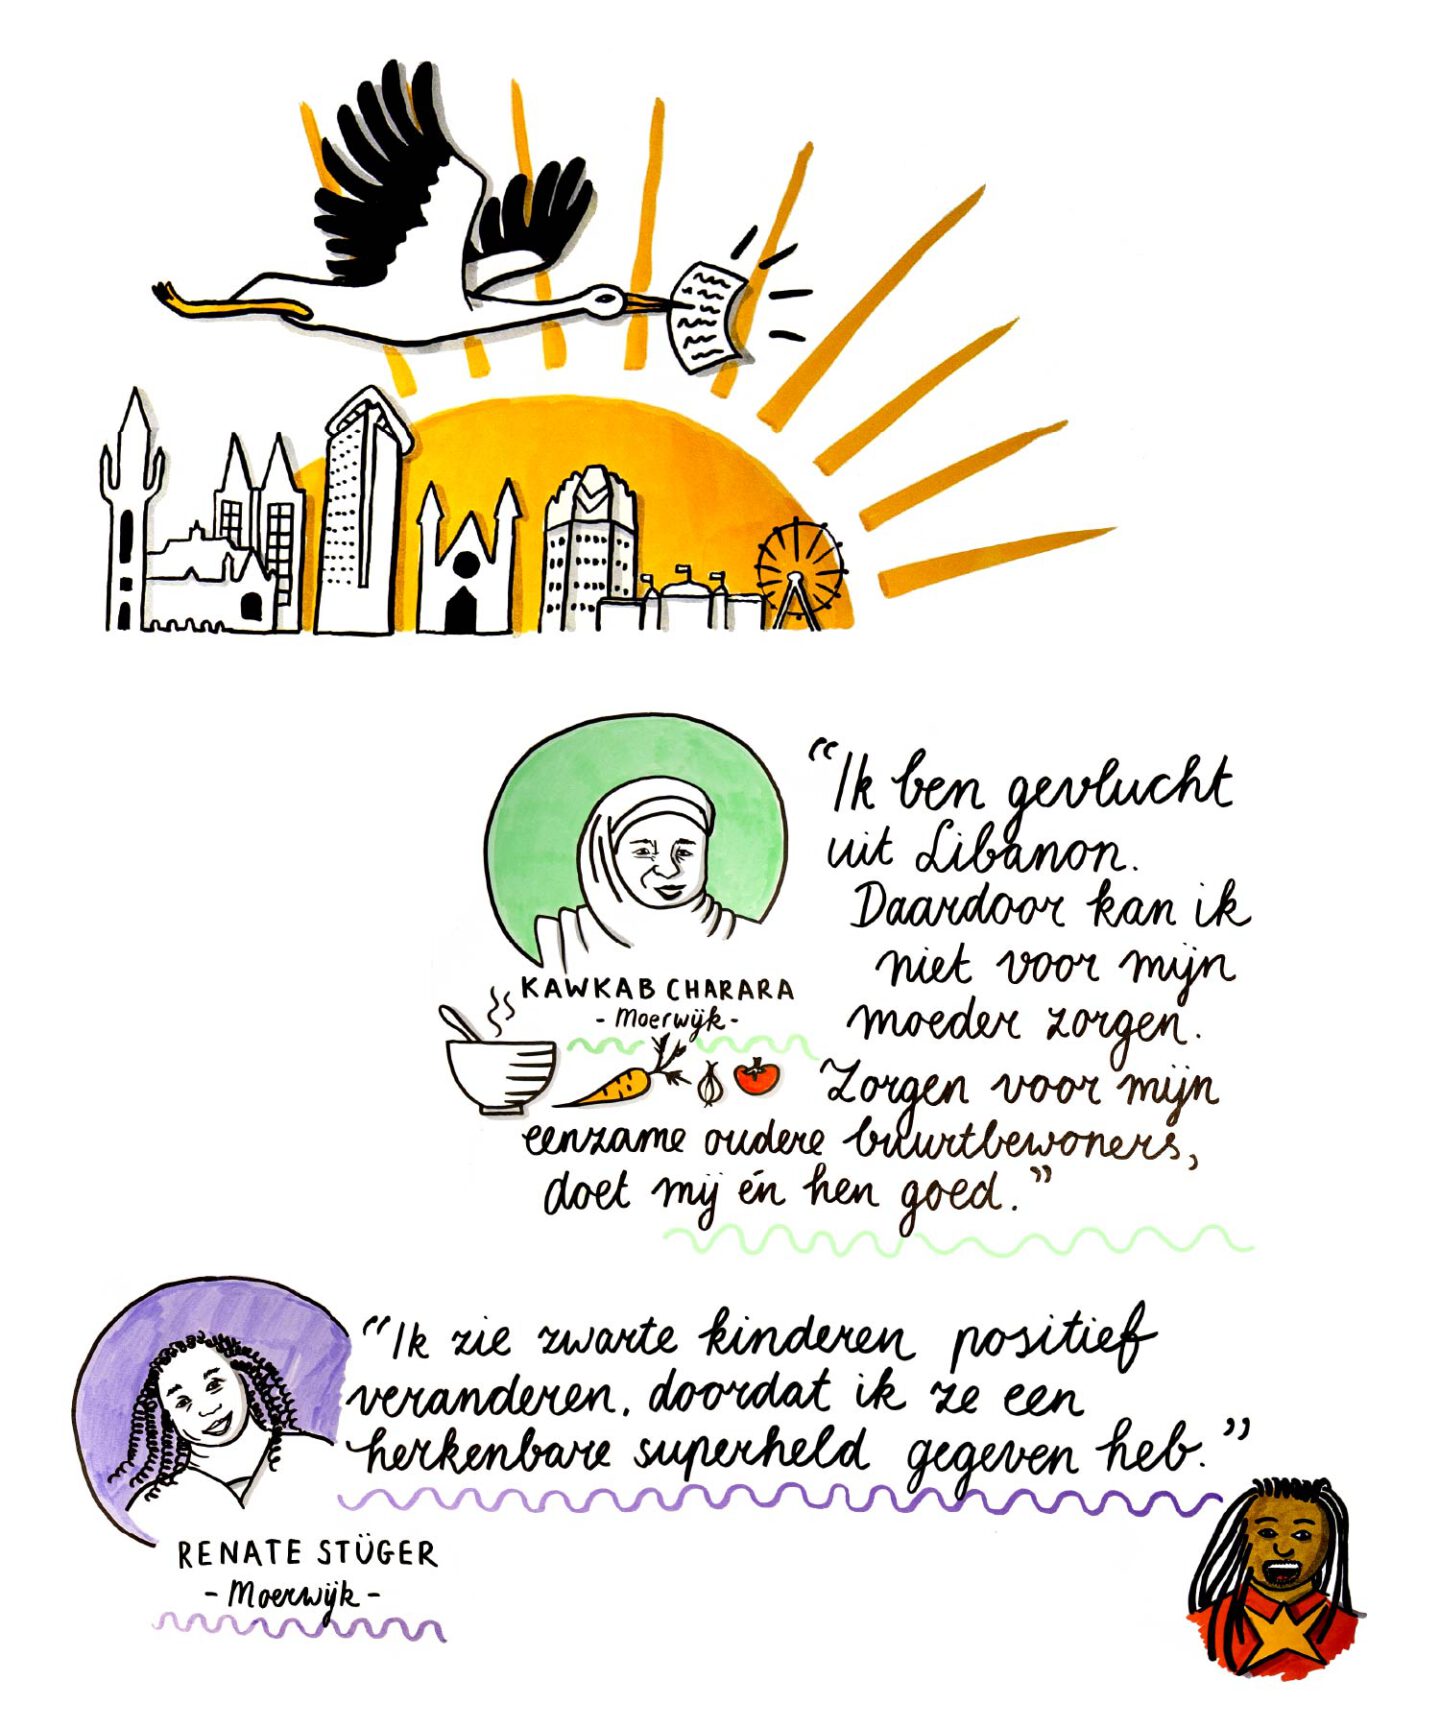 “Ik ben gevlucht
uit Libanon.
Daardoor kan ik
niet voor mijn
moeder zorgen.
Zorgen voor mijn
eenzame oudere buurtbewoners,
doet mij én hen goed.”
KAWKAB CHARARA
- Moerwijk -
“Ik zie zwarte kinderen positief
veranderen, doordat ik ze een
herkenbare superheld gegeven heb.”
RENATE STÜGER
- Moerwijk -